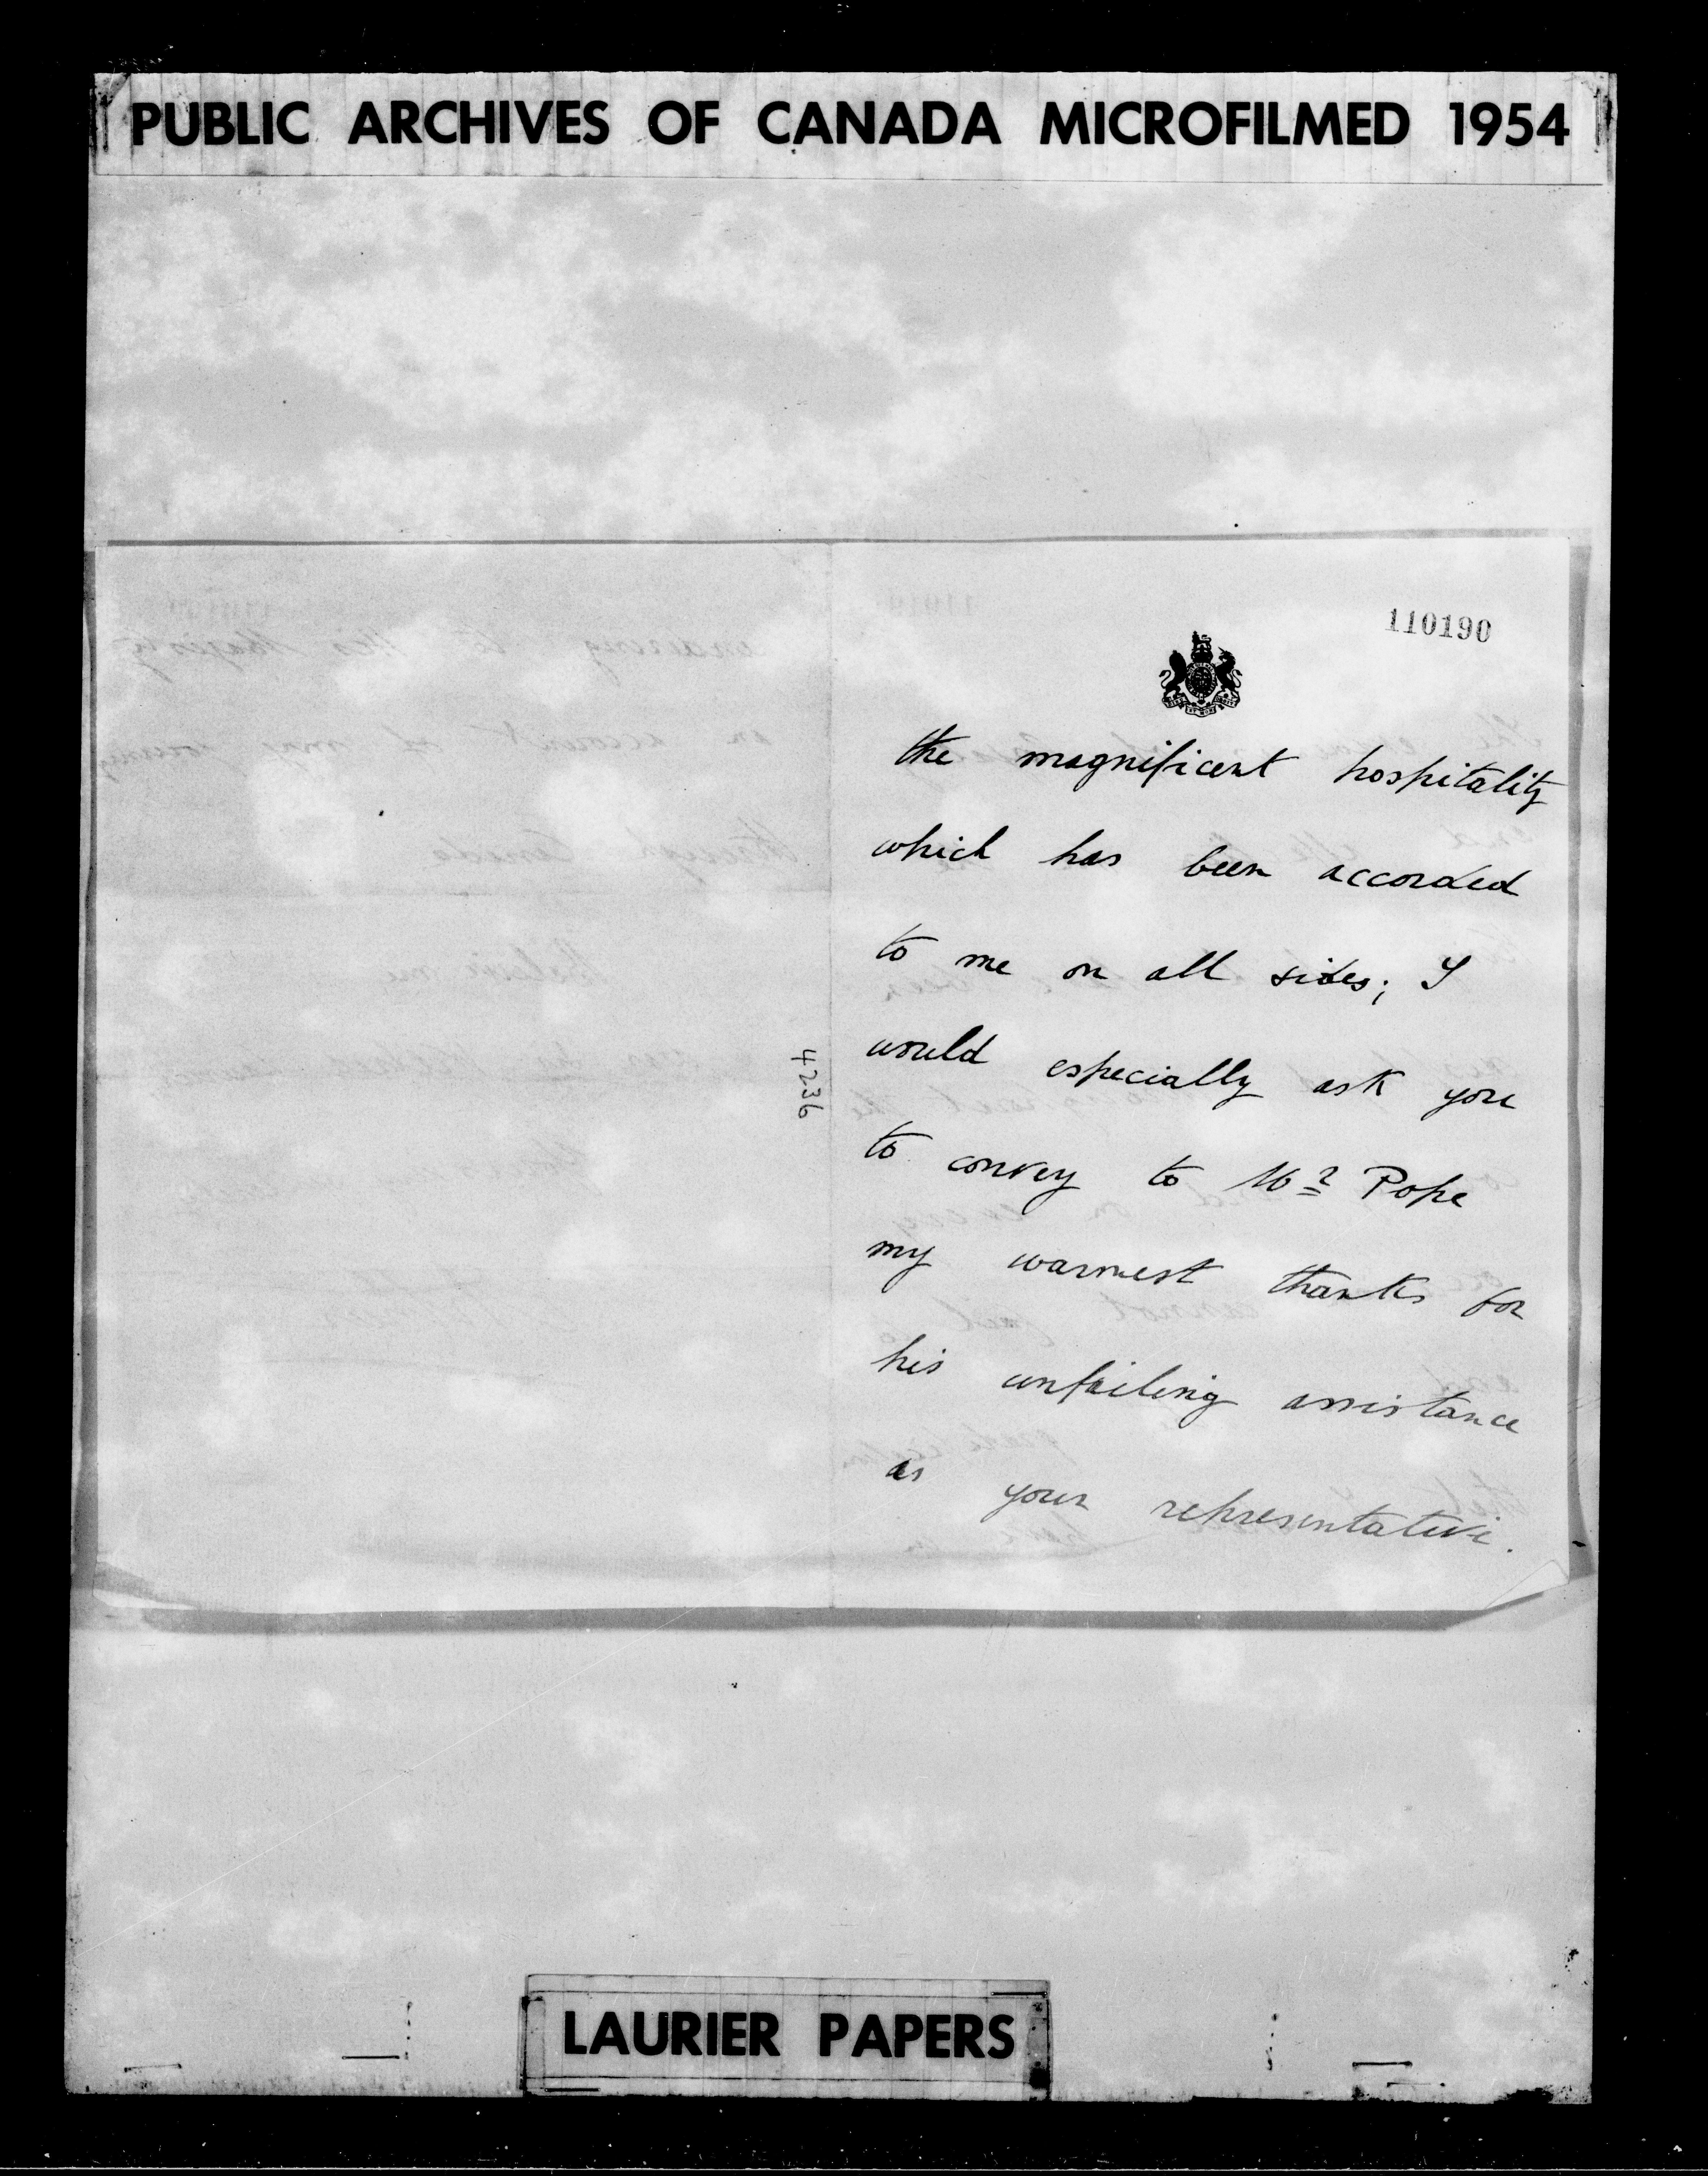 PUBLIC ARCHIVES OF CANADA MICROFILMED 1954
110190
the magnificent hospitality
which has been accorded
to me on all sides; I
would especially ask you
to convey to Mr Pope
my warmest thanks for
his unfailing assistance
as your representative.
4236
LAURIER PAPERS